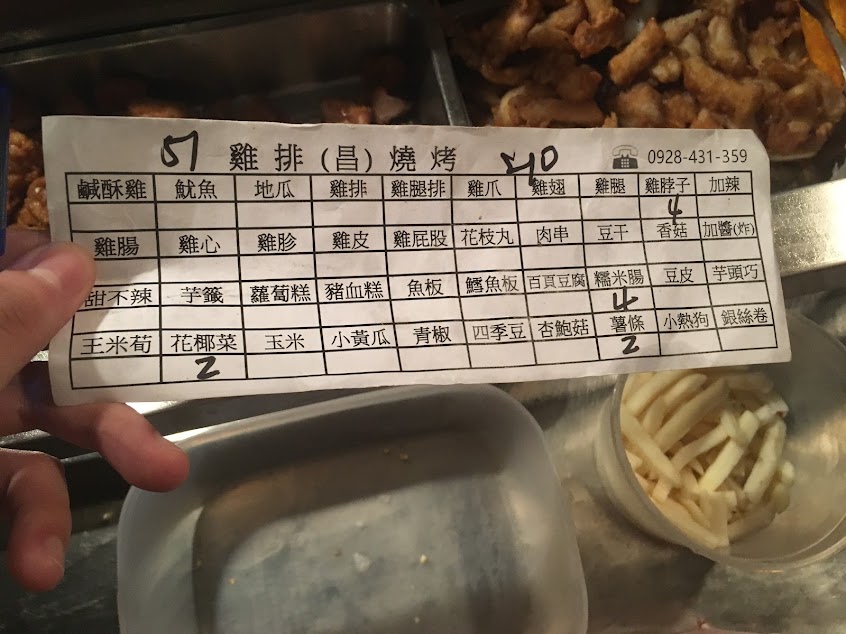 51 雞排(昌)燒烤 540 0928-431-359
鹹酥雞 魷魚 地瓜 雞排 雞腿排 雞爪 雞翅 雞腿 雞脖子 加辣
4
雞腸 雞心 雞胗 雞皮 雞屁股 花枝丸 肉串 豆干 香菇 加醬(炸)
甜不辣 芋籤 蘿蔔糕 豬血糕 魚板 鱈魚板 百頁豆腐 糯米腸 豆皮 芋頭巧
4
王米筍 花椰菜 玉米 小黃瓜 青椒 四季豆 杏鮑菇 薯條 小熱狗 銀絲卷
2 2